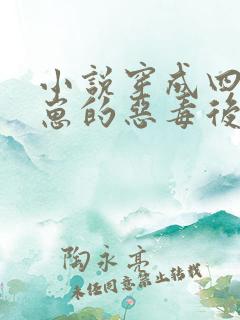 小說穿成四
崽的惡毒後
陶永亮
未經同意禁止轉載